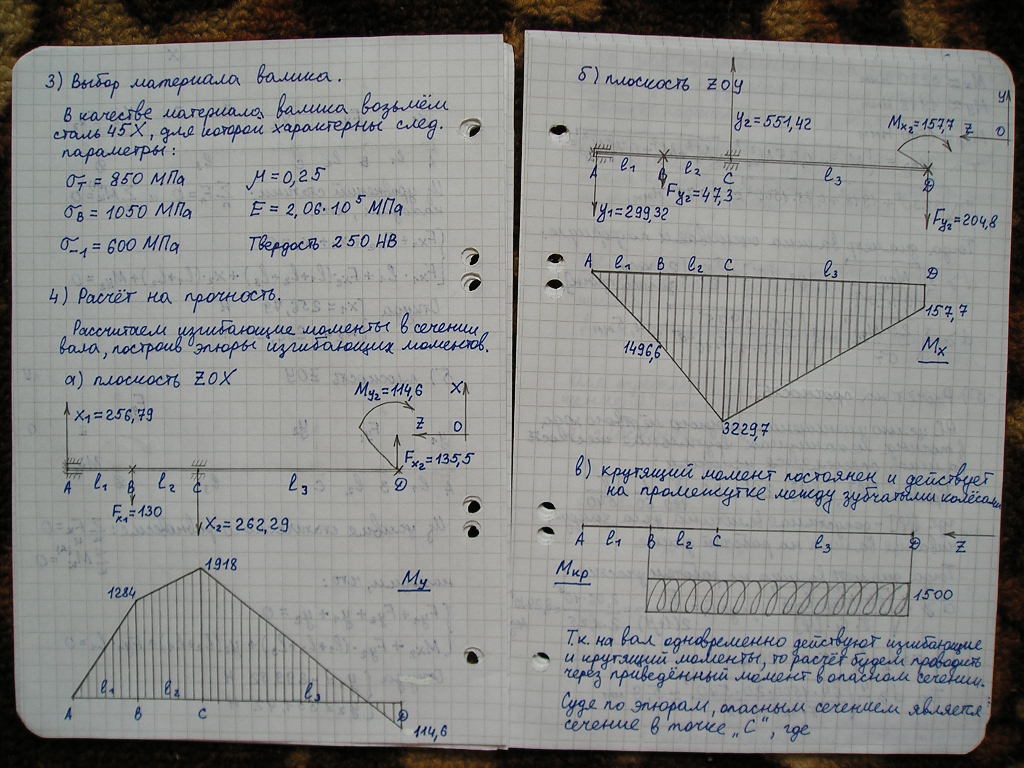 3) Выбор материала валика.
В качестве материала валика возьмём
сталь 45Х, для которой характерны след.
параметры:
σт = 850 МПа μ = 0,25
σв = 1050 МПа E = 2,06·10⁵ МПа
σ-1 = 600 МПа Твердость 250 НВ
4) Расчёт на прочность.
Рассчитаем изгибающие моменты в сечении
вала, построив эпюры изгибающих моментов.
а) плоскость ZOX
My2=114,6
X
x1=256,79
Z
O
Fx2=135,5
A l1 B l2 C l3 D
Fx1=130
x2=262,29
1918
1284
My
l1 l2 l3
A B C D
114,6
б) плоскость ZOY
y
y2=551,42
Mx2=157,7
Z
O
A l1 B l2 C l3 D
Fy2=47,3
y1=299,32
Fy2=204,8
A l1 B l2 C l3 D
157,7
1496,6
Mx
3229,7
в) крутящий момент постоянен и действует
на промежутке между зубчатыми колёсами
A l1 B l2 C l3 D Z
Мкр
1500
Т.к. на вал одновременно действуют изгибающие
и крутящий моменты, то расчёт будем проводить
через приведённый момент в опасном сечении.
Судя по эпюрам, опасным сечением является
сечение в точке „С“, где